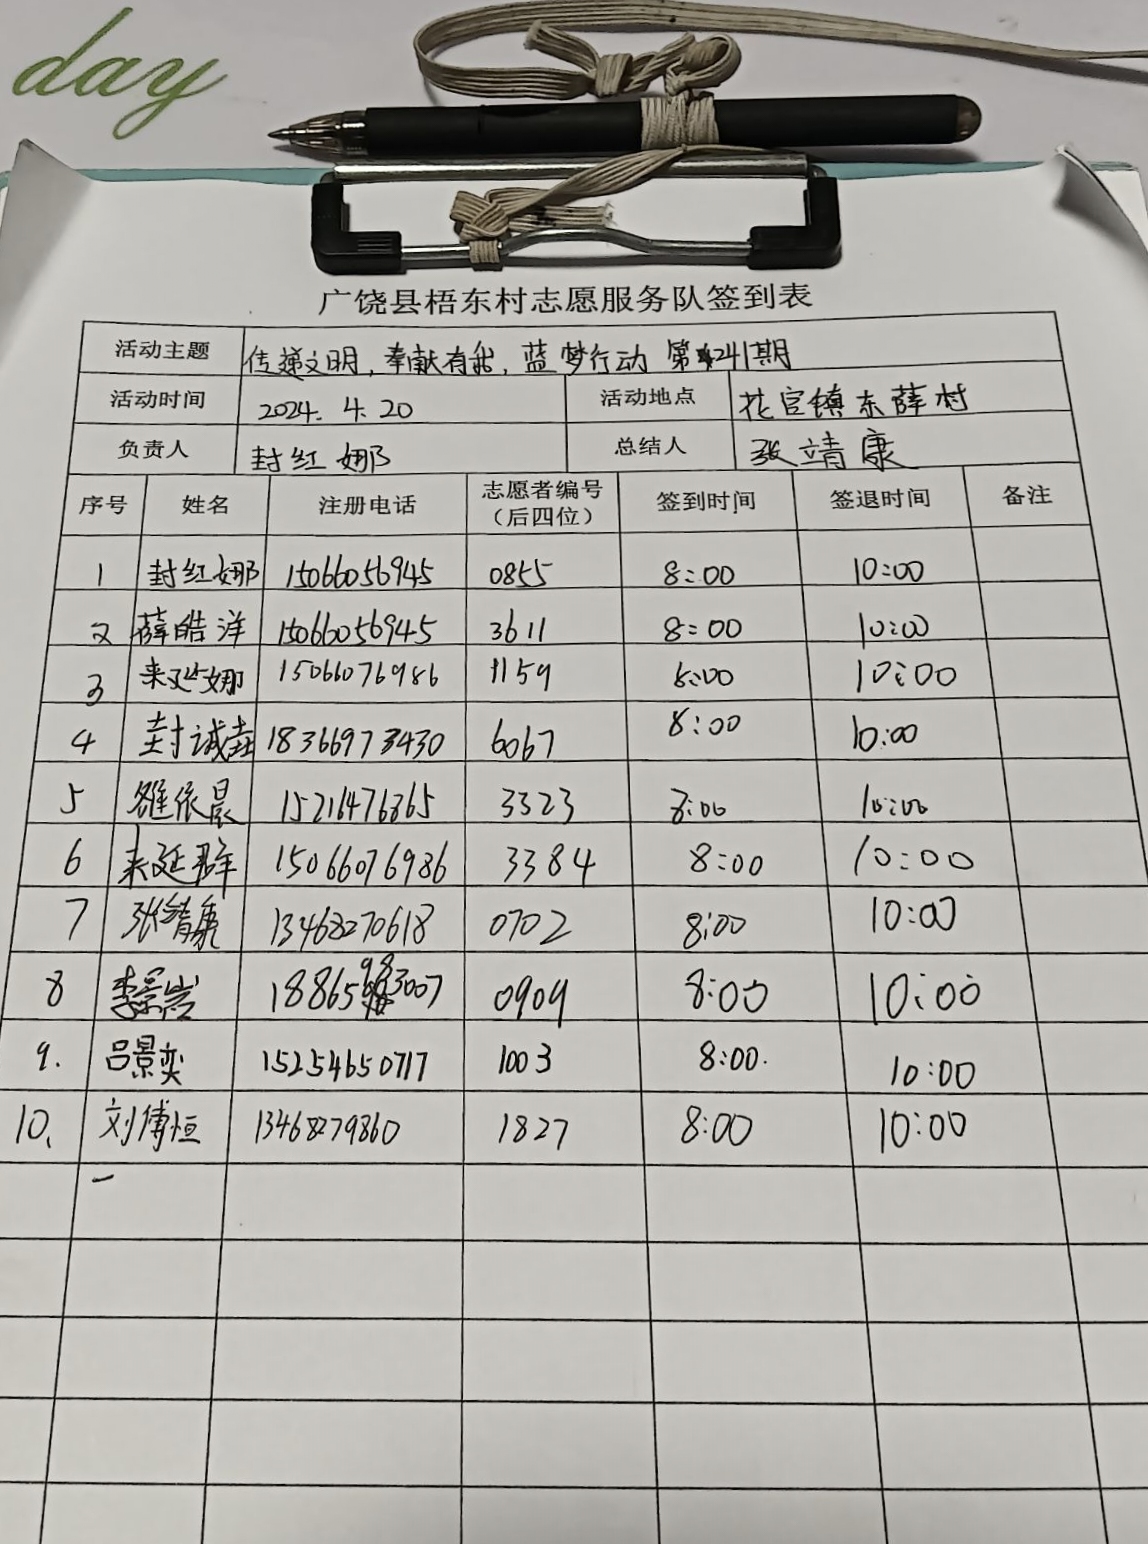 day
广饶县梧东村志愿服务队签到表
活动主题 传递文明，奉献有我，蓝梦行动 第241期
活动时间 2024. 4. 20 活动地点 花官镇东薛村
负责人 封红娜 总结人 张靖康
序号 姓名 注册电话 志愿者编号（后四位） 签到时间 签退时间 备注
1 封红娜 15066056945 0855 8:00 10:00
2 薛皓洋 15066056945 3611 8:00 10:00
3 来延娜 15066076986 1159 8:00 10:00
4 封诚垚 18366973430 6067 8:00 10:00
5 雒依晨 15216476365 3323 8:00 10:00
6 来延群 15066076986 3384 8:00 10:00
7 张靖康 13468270618 0702 8:00 10:00
8 李景岩 18865983007 0909 8:00 10:00
9. 吕景奕 15254650717 1003 8:00. 10:00
10、 刘傅恒 13468279860 1827 8:00 10:00